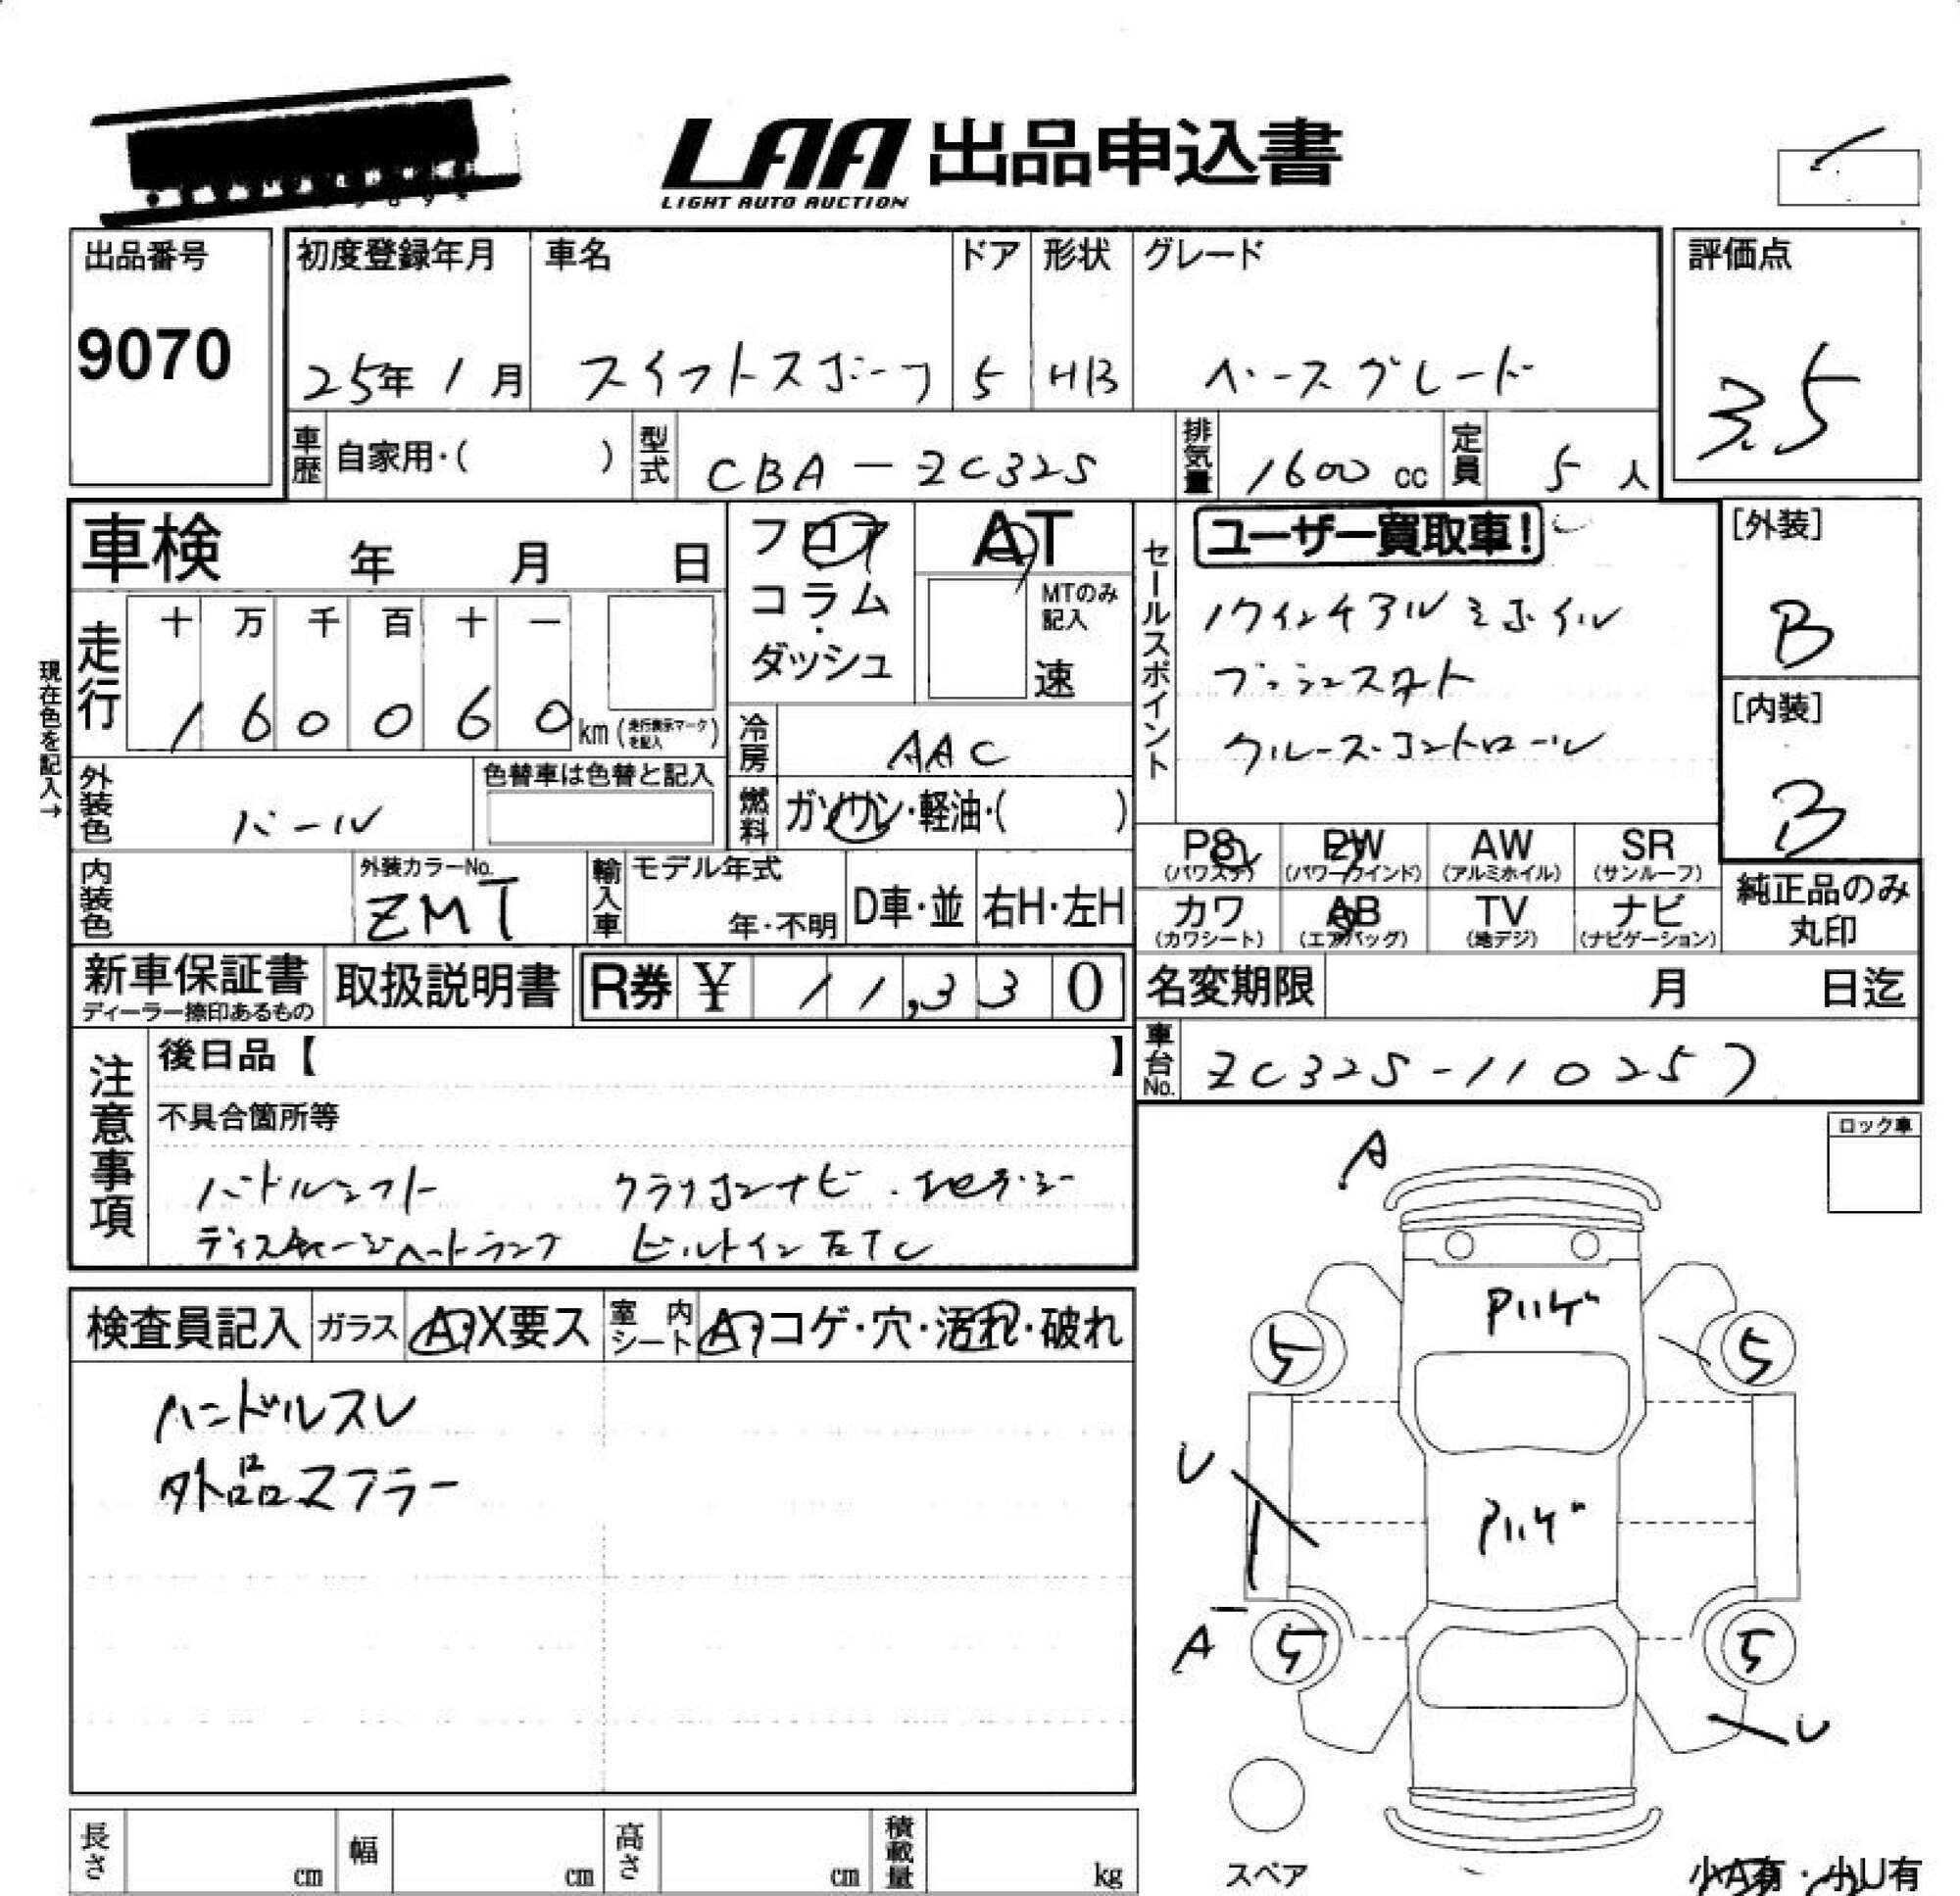 LAA 出品申込書
LIGHT AUTO AUCTION
出品番号
9070
初度登録年月 車名 ドア 形状 グレード
25年 1月 スイフトスポーツ 5 HB ベースグレード
評価点
3.5
車歴 自家用・( ) 型式 CBA-ZC32S 排気量 1600 cc 定員 5 人
車検 年 月 日
フロア
コラム・
ダッシュ
AT
MTのみ
記入
速
現在色を記入→
走行
十 万 千 百 十 一
1 6 0 0 6 0 km (走行表示マークを記入)
冷房 AAC
外装色 パール
色替車は色替と記入
燃料 ガソリン・軽油・( )
内装色
外装カラーNo.
ZMT
輸入車 モデル年式
年・不明 D車・並 右H・左H
セールスポイント
ユーザー買取車!
17インチアルミホイル
プッシュスタート
クルーズコントロール
[外装]
B
[内装]
B
PS PW AW SR
(パワステ) (パワーウインド) (アルミホイル) (サンルーフ)
カワ AB TV ナビ
(カワシート) (エアバッグ) (地デジ) (ナビゲーション)
純正品のみ
丸印
新車保証書
ディーラー捺印あるもの
取扱説明書
R券 ¥ 11,330
名変期限 月 日迄
車台No. ZC32S-110257
注意事項
後日品【 】
不具合箇所等
ハンドルシフト クラリオンナビ・地デジ
ディスチャージヘッドランプ ビルトインETC
ロック車
検査員記入 ガラス A・X要ス 室内シート A・コゲ・穴・汚れ・破れ
ハンドルスレ
外品マフラー
A
アハゲ
5 5
U
アハゲ
A 5 5
U
スペア
小A有・小U有
長さ cm 幅 cm 高さ cm 積載量 kg